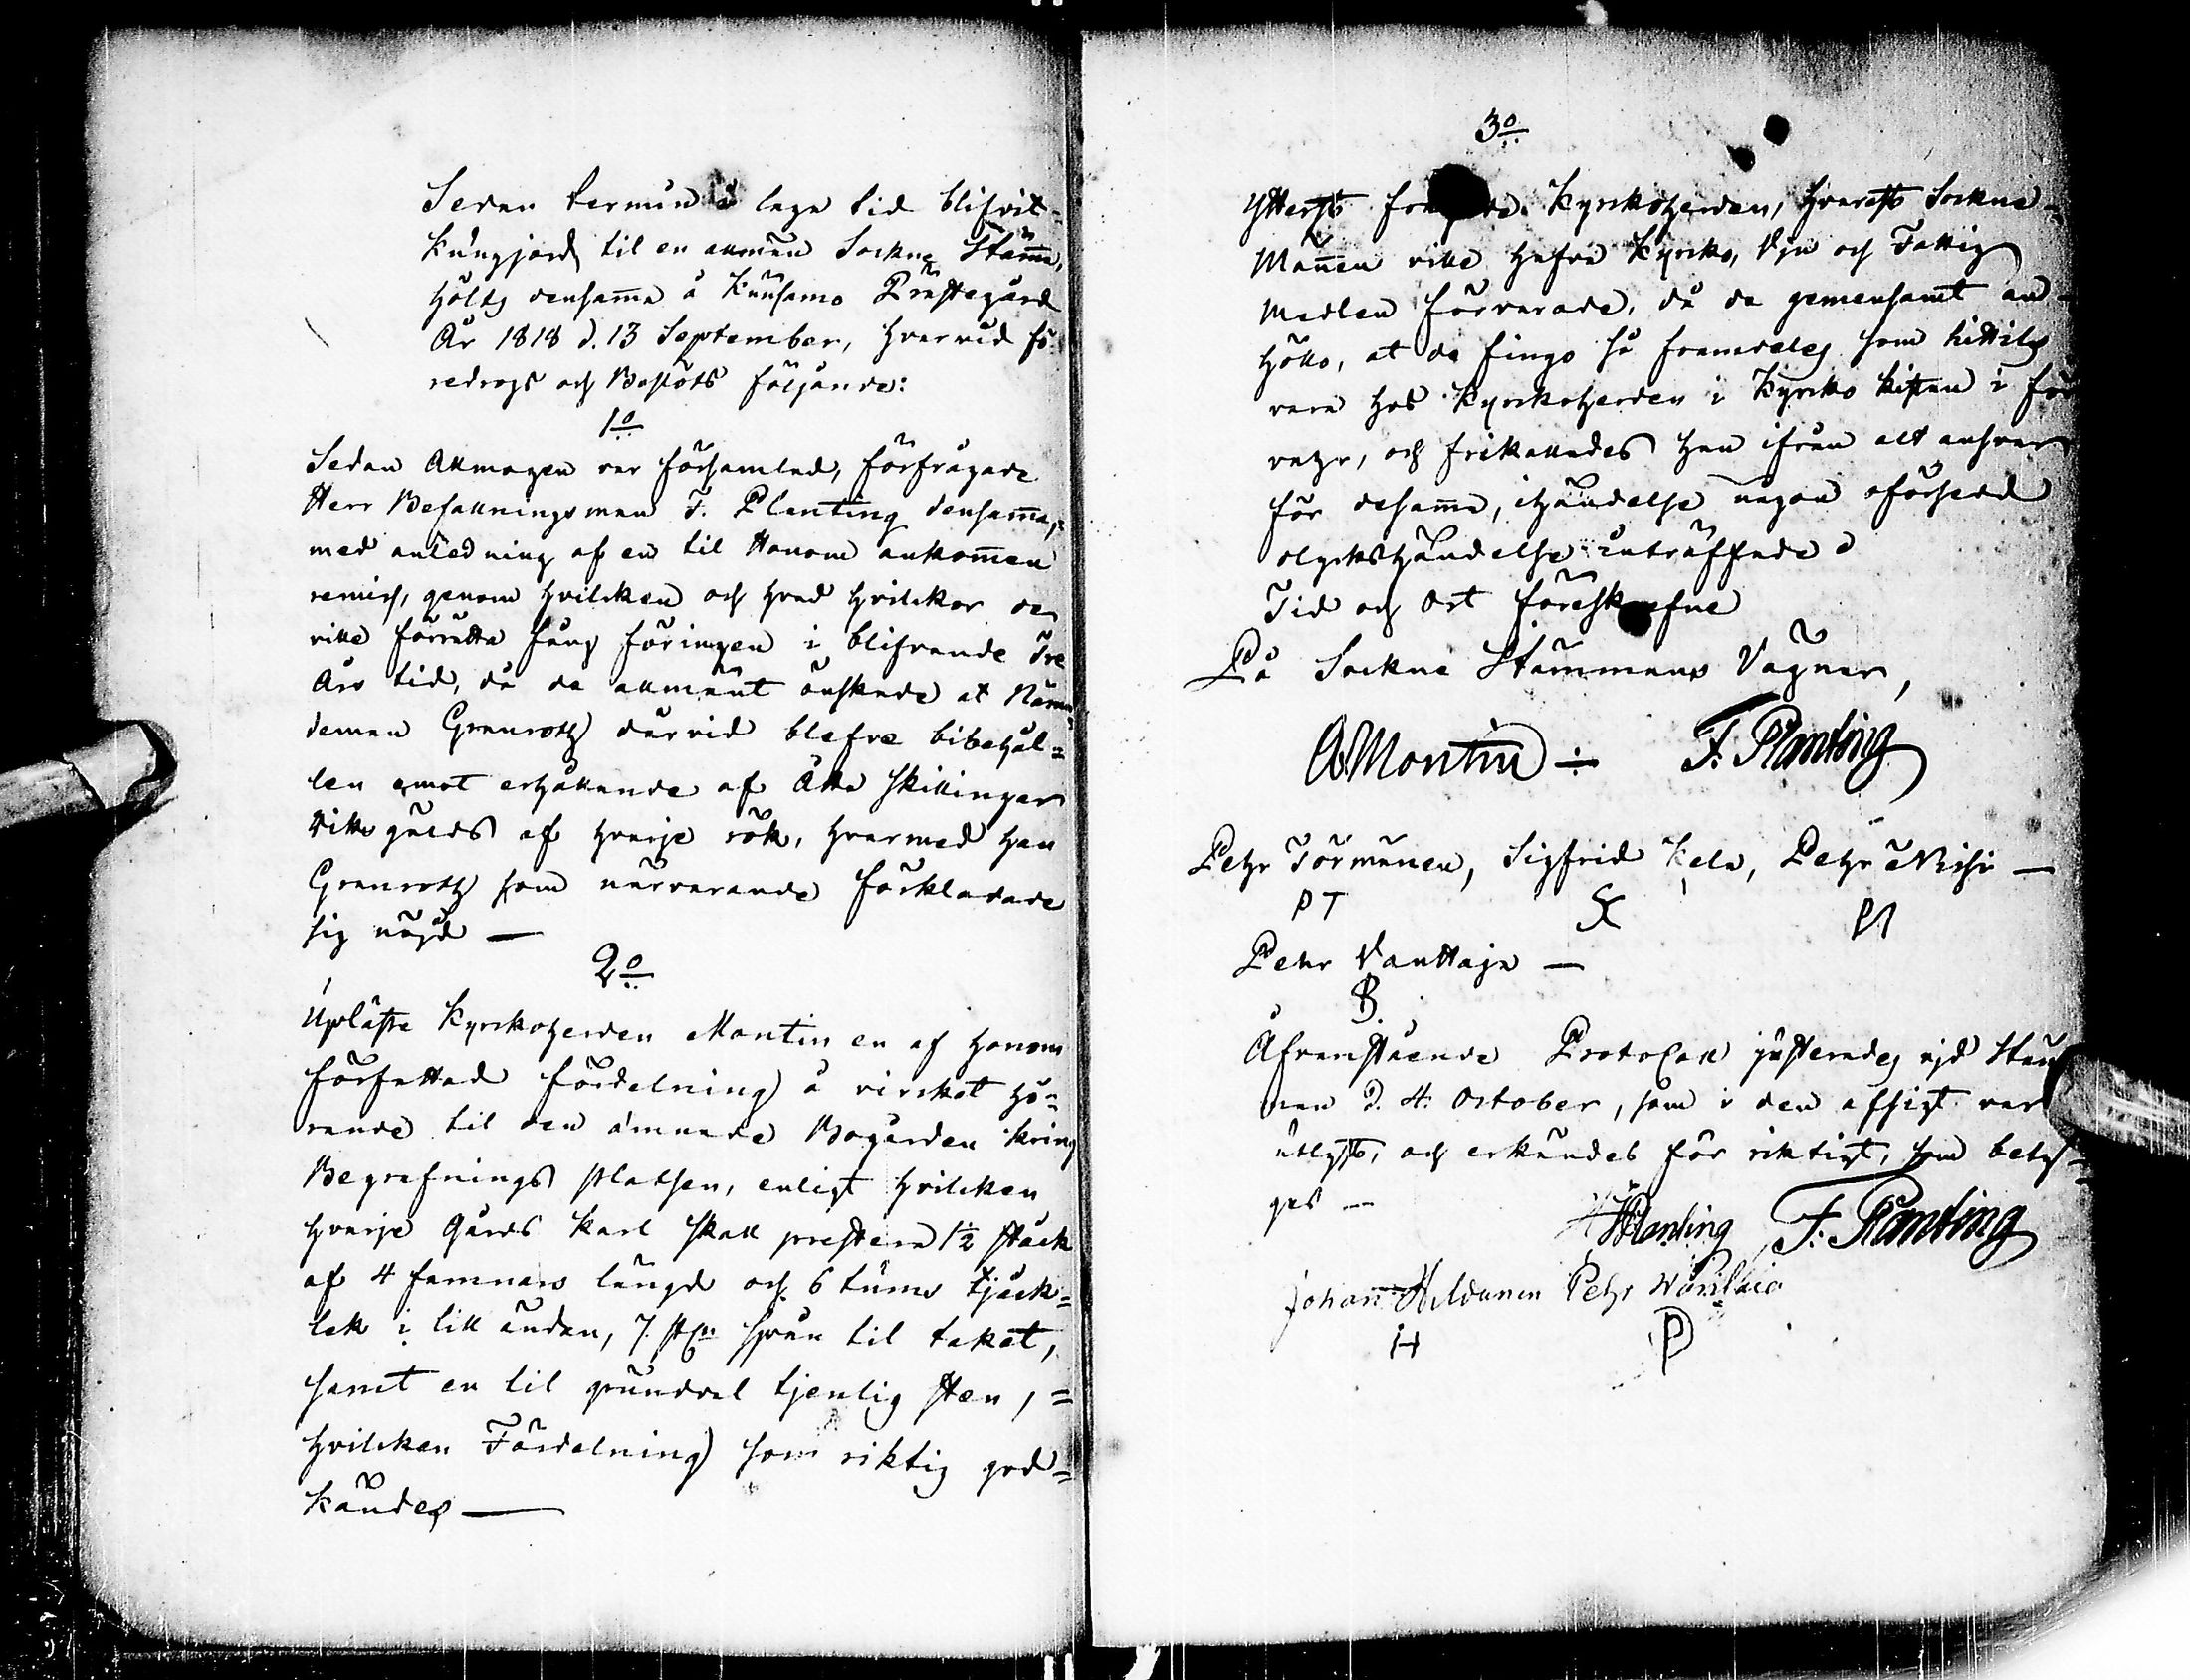 Sedan termin å laga tid blifvit
kungjord til en allmän Sockne Stäma,
hölts densama å Kuusamo Prästegård
År 1818 d. 13 September, hvarvid fö-
redrogs och Beslöts följande:
1o
Sedan Allmogen var församlad, förfrågade
Herr Befallningsman F. Planting densama,
med anledning af en til Honom ankomen
remiss, genom hvilcken och hvad hvilckor de
ville förrätta fång föringen i blifvande Tre
Års tid, då de allmänt önskade at Näm-
deman Granroth därvid blefve bibehål=
len emot erhållande af Åtta skillingar
Riks gälds af hvarje rök, hvarmed han
Granroth som närvarande förklarade
sig nöjd —
2o
Upläste Kyrkoherden Montin en af honom
författad fördelning å vircket hö=
rande til den ämnade Bogården kring
Begrafnings platsen, enligt hvilcken
hvarje Gårds karl skall prestera 1½ stock
af 4 famnars längd och 6 tums tjock=
lek i lill ändan, 7 st spån til taket,
samt en til grundval tjenlig sten, =
hvilcken Fördelning som riktig god=
kändes —
3o
Ytterst frågade Kyrkoherden, hvarest Sockne-
Mänen ville hafva Kyrko, och Fattig
Medlen förvarade, då de gemensamt an-
höllo, at de fingo så framdeles som hittils
vara hos Kyrkoherden i Kyrko kistan i för
var, och frikallades han ifrån alt ansvar
för desama, ihändelse någon oförsedd
olyckshändelse inträffade
Tid och Ort föreskrefne
På Sockne Stämmans Vägnar,
A Montin ÷ F. Planting
Pehr Törmänen, Sigfrid Kela, Pehr Nissi —
PT PN
Pehr Vanttaja —
B.
Åfvanstående Protocoll justerades vid Stäm
man d. 4. October, som i den afsigt var
utlyst, och erkändes för riktigt, som bety-
gas —
Planting F. Planting
Johan Pehr
H P